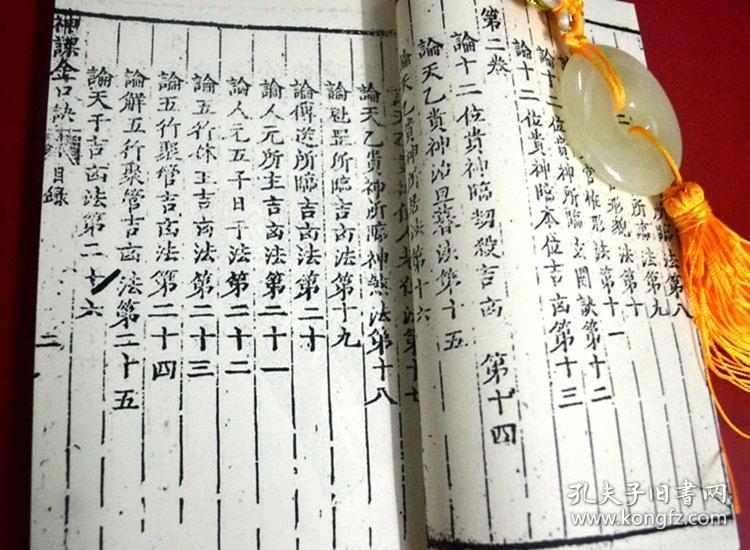 第八
法第九
形貌法第十一
論十二位貴神所臨玄關訣第十二
論十二位貴神臨本位吉凶第十三
第二卷
論十二位貴神臨劫殺吉凶 第十四
論天乙貴神治旦暮法第十五
論天乙貴神所居法第十六
法第十七
論天乙貴神所臨神煞法第十八
論魁罡所臨吉凶法第十九
論傳送所臨吉凶法第二十
論人元所主吉凶法第二十一
論人元五子日干法第二十二
論五行休王吉凶法第二十三
論五行聚管吉凶法第二十四
論解五行聚管吉凶法第二十五
論天干吉凶法第二十六
神課金口訣 目錄 二
孔夫子旧书网
www.kongfz.com